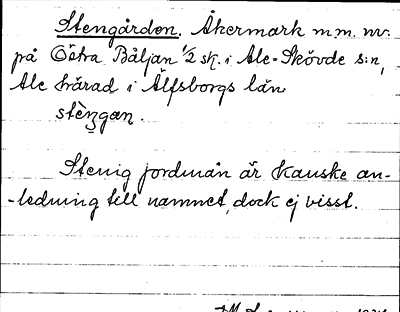 Stengården. Åkermark m.m. nv.
på Östra Båljan 1/2 sk. i Ale-Skövde s:n,
Ale härad i Älfsborgs län
stèngan.
Stenig jordmån är kanske an-
-ledning till namnet, dock ej visst.